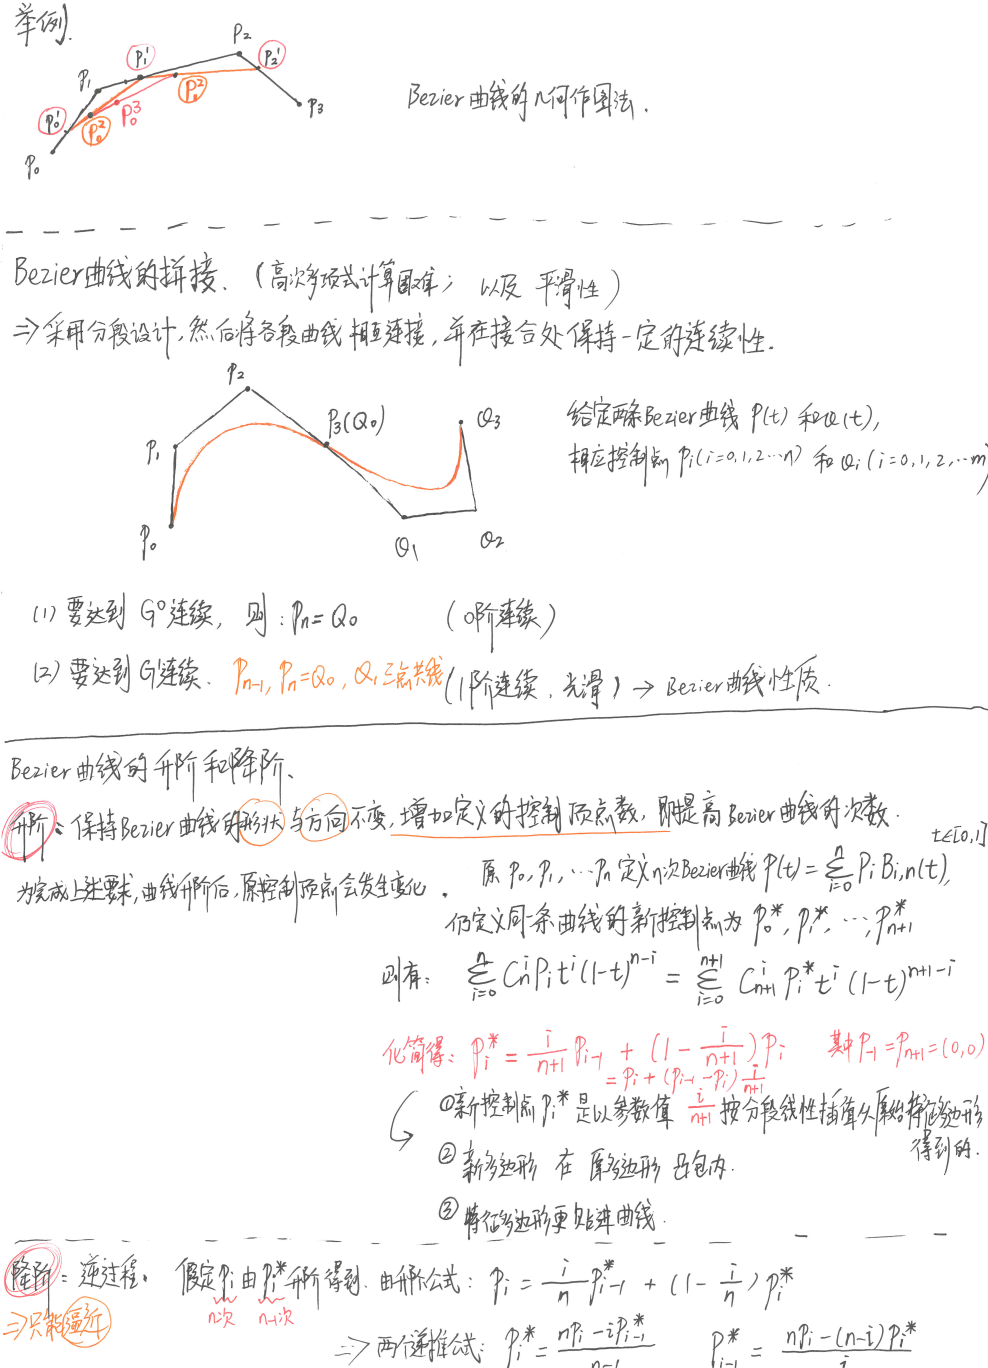 举例.
P₀ P₁ P₂ P₃ P₀¹ P₁¹ P₂¹ P₀² P₁² P₀³
Bezier曲线的几何作图法.
Bezier曲线的拼接. (高次多项式计算困难; 以及 平滑性)
⇒ 采用分段设计,然后将各段曲线相互连接,并在接合处保持一定的连续性.
P₀ P₁ P₂ P₃(Q₀) Q₁ Q₂ Q₃
给定两条Bezier曲线 P(t) 和Q(t),
相应控制点 Pi(i=0,1,2…n) 和 Qi(i=0,1,2,…m)
(1) 要达到 G⁰连续, 则: Pn=Q₀ (0阶连续)
(2) 要达到G¹连续. Pn-1, Pn=Q₀, Q₁三点共线 (1阶连续, 光滑) → Bezier曲线性质.
Bezier曲线的升阶和降阶.
升阶: 保持Bezier曲线的形状与方向不变,增加定义的控制顶点数,即提高Bezier曲线的次数.
为完成上述要求,曲线升阶后,原控制顶点会发生变化.
原 P₀, P₁, …Pn 定义n次Bezier曲线 P(t) = Σ_{i=0}^{n} Pi Bi,n(t), t∈[0,1]
仍定义同一条曲线的新控制点为 P₀*, P₁*, …, Pn+1*
则有: Σ_{i=0}^{n} C_n^i Pi t^i (1-t)^{n-i} = Σ_{i=0}^{n+1} C_{n+1}^i Pi* t^i (1-t)^{n+1-i}
化简得: Pi* = i/(n+1) Pi-1 + (1 - i/(n+1)) Pi 其中 P-1=Pn+1=(0,0)
= Pi + (Pi-1 - Pi) i/(n+1)
①新控制点 Pi* 是以参数值 i/(n+1) 按分段线性插值从原始特征多边形
得到的.
② 新多边形 在 原多边形 凸包内.
③ 特征多边形更贴近曲线.
降阶: 逆过程. 假定Pi由Pi*升阶得到. 由升阶公式: Pi = i/n Pi-1* + (1 - i/n) Pi*
n次 n-1次
⇒只能逼近
⇒ 两个递推公式: Pi* = (nPi - iPi-1*)/(n-i) Pi-1* = (nPi - (n-i)Pi*)/i